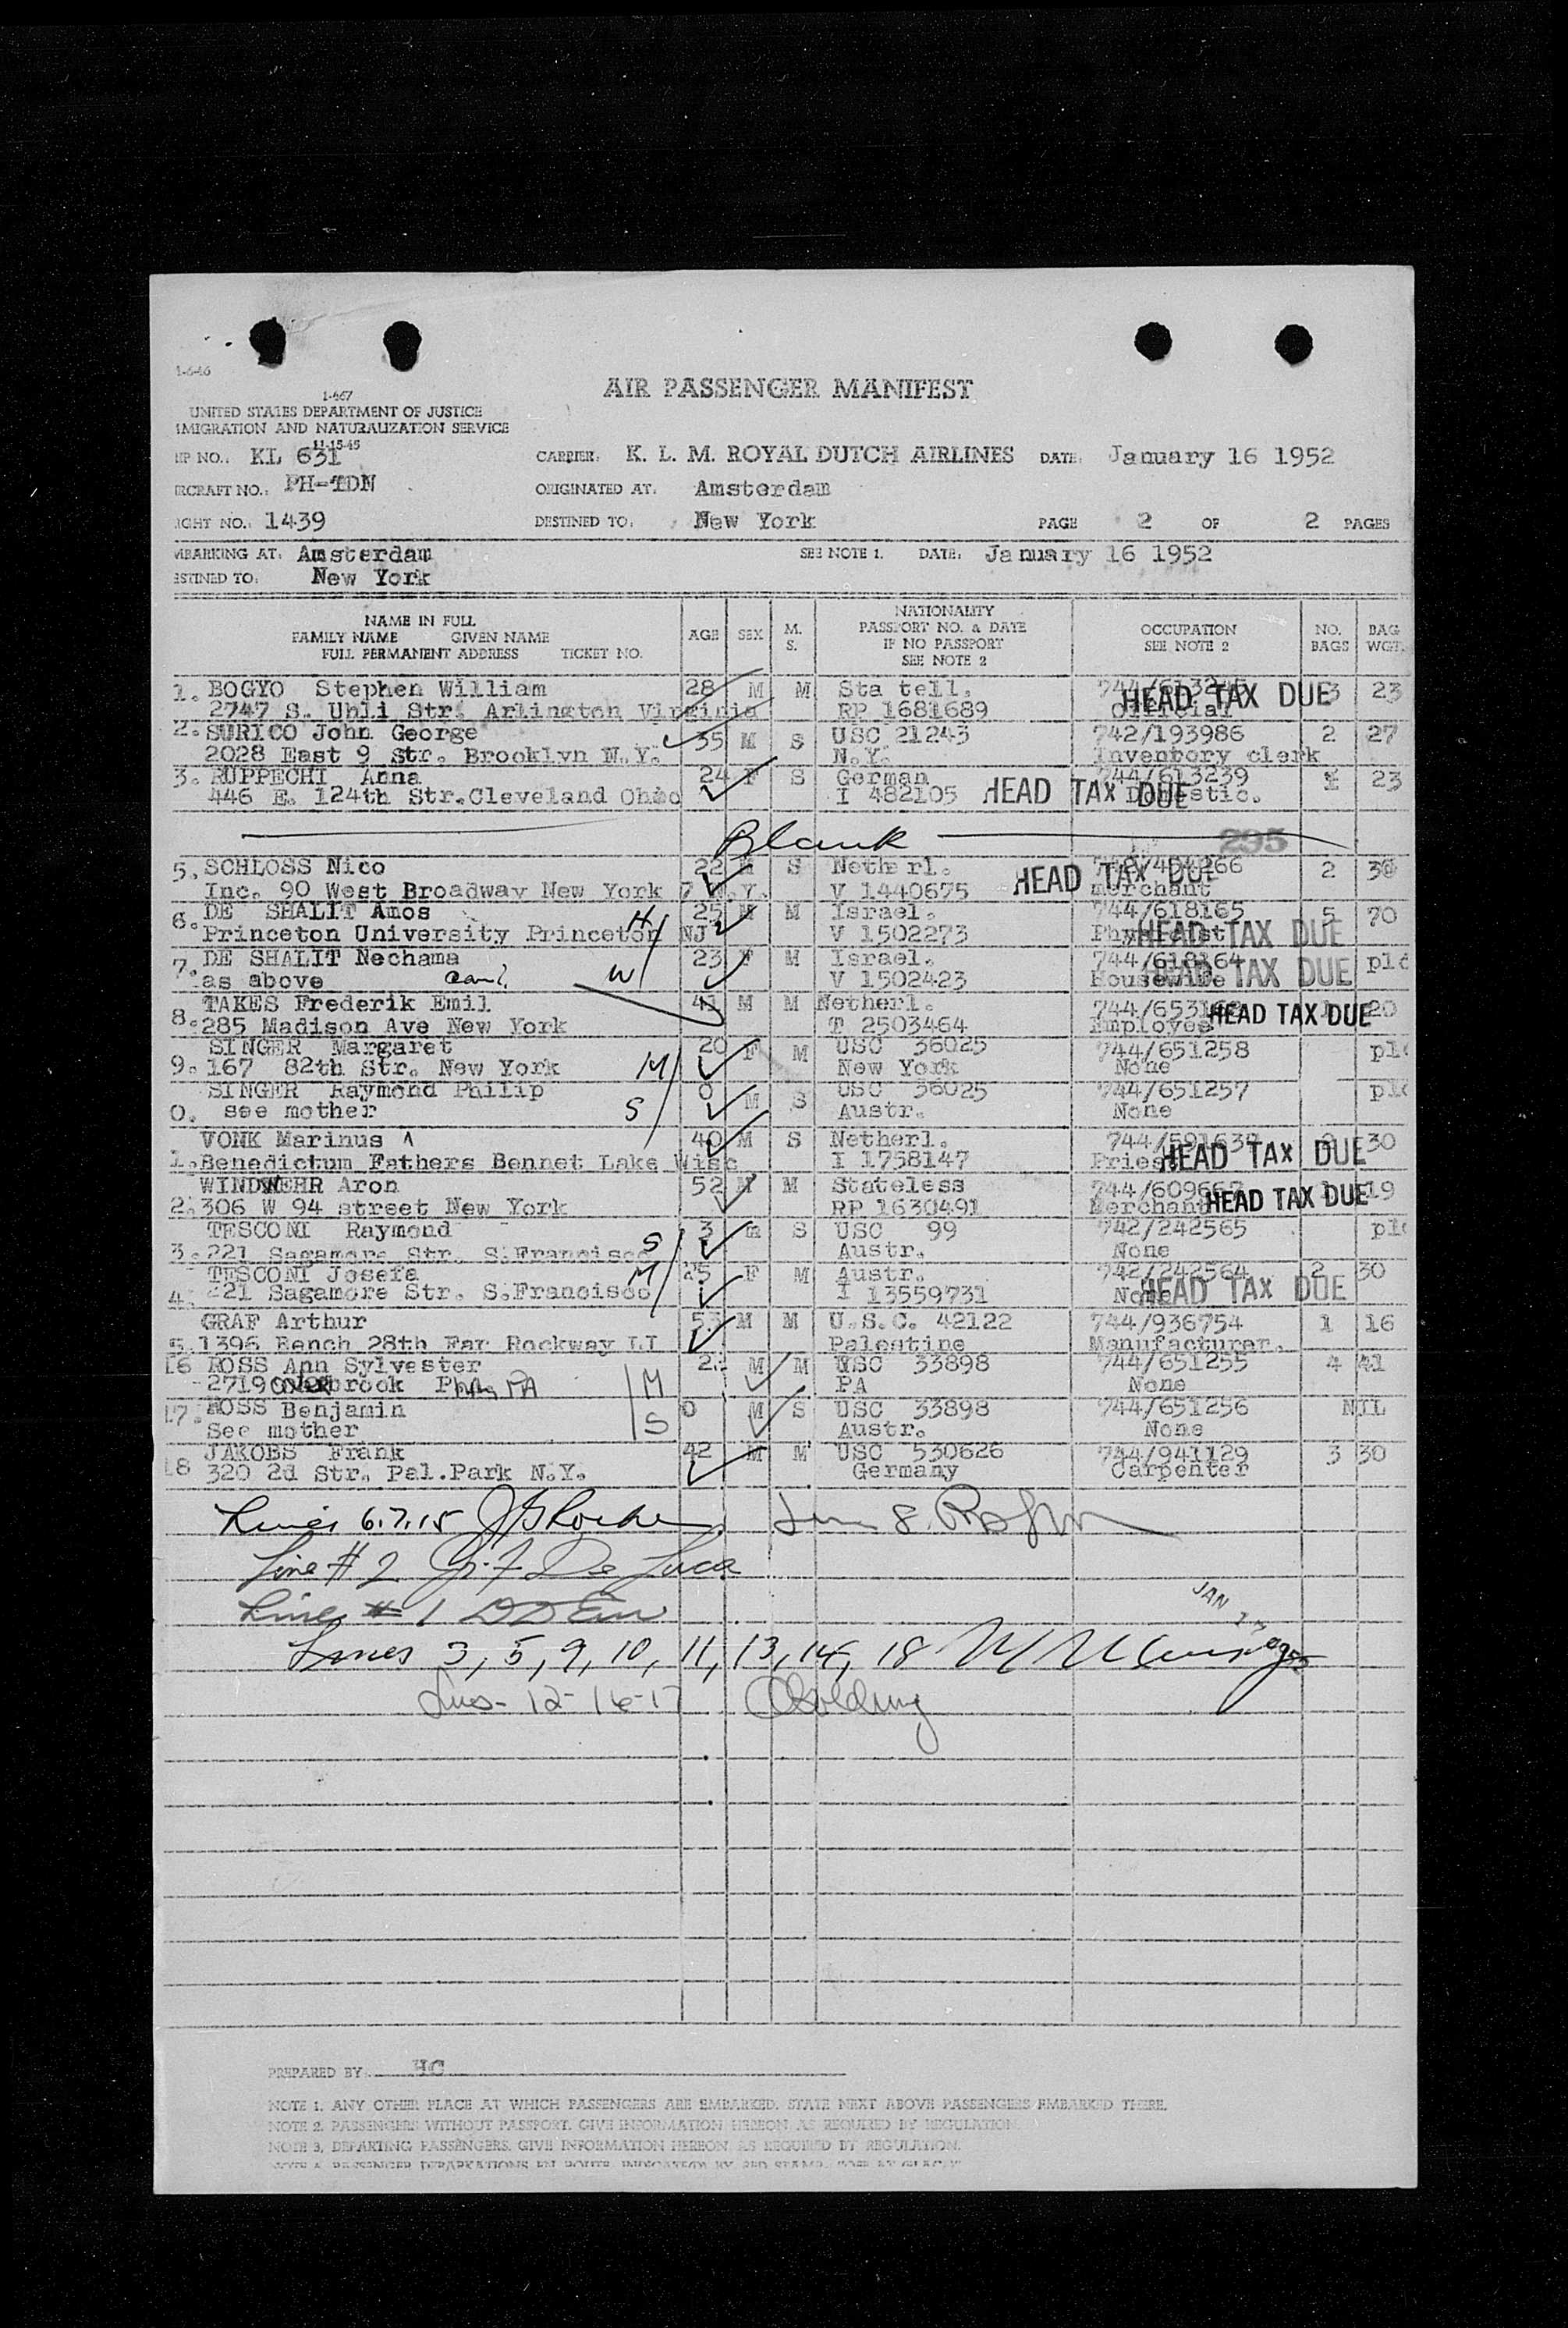 1-6-46
AIR PASSENGER MANIFEST
1-467
UNITED STATES DEPARTMENT OF JUSTICE
IMIGRATION AND NATURALIZATION SERVICE
11-15-45
IP NO.: KL 631 CARRIER: K. L. M. ROYAL DUTCH AIRLINES DATE: January 16 1952
IRCRAFT NO.: PH-TDN ORIGINATED AT: Amsterdam
IGHT NO.: 1439 DESTINED TO: New York PAGE 2 OF 2 PAGES
MBARKING AT: Amsterdam SEE NOTE 1. DATE: January 16 1952
ESTINED TO: New York
NAME IN FULL
FAMILY NAME GIVEN NAME
FULL PERMANENT ADDRESS TICKET NO.
AGE SEX M. S.
NATIONALITY
PASSPORT NO. & DATE
IF NO PASSPORT
SEE NOTE 2
OCCUPATION
SEE NOTE 2
NO. BAGS
BAG WGT.
1. BOGYO Stephen William 28 M M Sta tell. HEAD TAX DUE 3 23
2747 S. Uhli Str. Arlington Virginia RP 1681689 Official
2. SURICO John George 35 M S USC 21243 742/193986 2 27
2028 East 9 Str. Brooklyn N.Y. N.Y. Inventory clerk
3. RUPPECHT Anna 24 F S German 744/613239 23
446 E. 124th Str. Cleveland Ohio I 482105 HEAD TAX DUE Domestic.
Blank 295
5. SCHLOSS Nico 22 M S Netherl. HEAD TAX DUE 2 30
Inc. 90 West Broadway New York 7 N.Y. V 1440675 merchant
6. DE SHALIT Amos H 25 M M Israel. 744/618165 5 70
Princeton University Princeton NJ V 1502273 HEAD TAX DUE
7. DE SHALIT Nechama 23 F M Israel. 744/618164 plc
as above W V 1502423 Housewife HEAD TAX DUE
8. TAKES Frederik Emil 41 M M Netherl. HEAD TAX DUE 20
285 Madison Ave New York T 2503464 Employee
SINGER Margaret 20 F M USC 36025 744/651258 plc
9. 167 82th Str. New York M New York None
SINGER Raymond Philip 0 M S USC 36025 744/651257 plc
0. see mother S Austr. None
VONK Marinus 40 M S Netherl. 744/591639 30
1. Benedictum Fathers Bennet Lake Wisc I 1758147 Priest HEAD TAX DUE
WINDWEHR Aron 52 M M Stateless 744/609667 1 19
2. 306 W 94 street New York RP 1630491 Merchant HEAD TAX DUE
TESCONI Raymond 3 m S USC 99 742/242565 plc
3. 221 Sagamore Str. S.Francisco S Austr. None
TESCONI Josefa M 25 F M Austr. 742/242564 2 30
4. 221 Sagamore Str. S.Francisco I 13559731 None HEAD TAX DUE
GRAF Arthur 53 M M U.S.C. 42122 744/936754 1 16
5. 1396 Bench 28th Far Rockway LI Palestine Manufacturer.
16 ROSS Ann Sylvester M M USC 33898 744/651255 4 41
2719 brook PA M PA None
17. ROSS Benjamin 0 M S USC 33898 744/651256 NIL
See mother S Austr. None
18 JAKOBS Frank 42 M M USC 530626 744/941129 3 30
320 2d Str. Pal.Park N.Y. Germany Carpenter
Lines 6.7.15
Line # 2 De Luca
Line # 1
JAN 17
Lines 3, 5, 9, 10, 11, 13, 14, 18
Lines- 12- 16-17 Golding
PREPARED BY: HC
NOTE 1. ANY OTHER PLACE AT WHICH PASSENGERS ARE EMBARKED. STATE NEXT ABOVE PASSENGERS EMBARKED THERE.
NOTE 2. PASSENGERS WITHOUT PASSPORT. GIVE INFORMATION HEREON AS REQUIRED BY REGULATION.
NOTE 3. DEPARTING PASSENGERS. GIVE INFORMATION HEREON AS REQUIRED BY REGULATION.